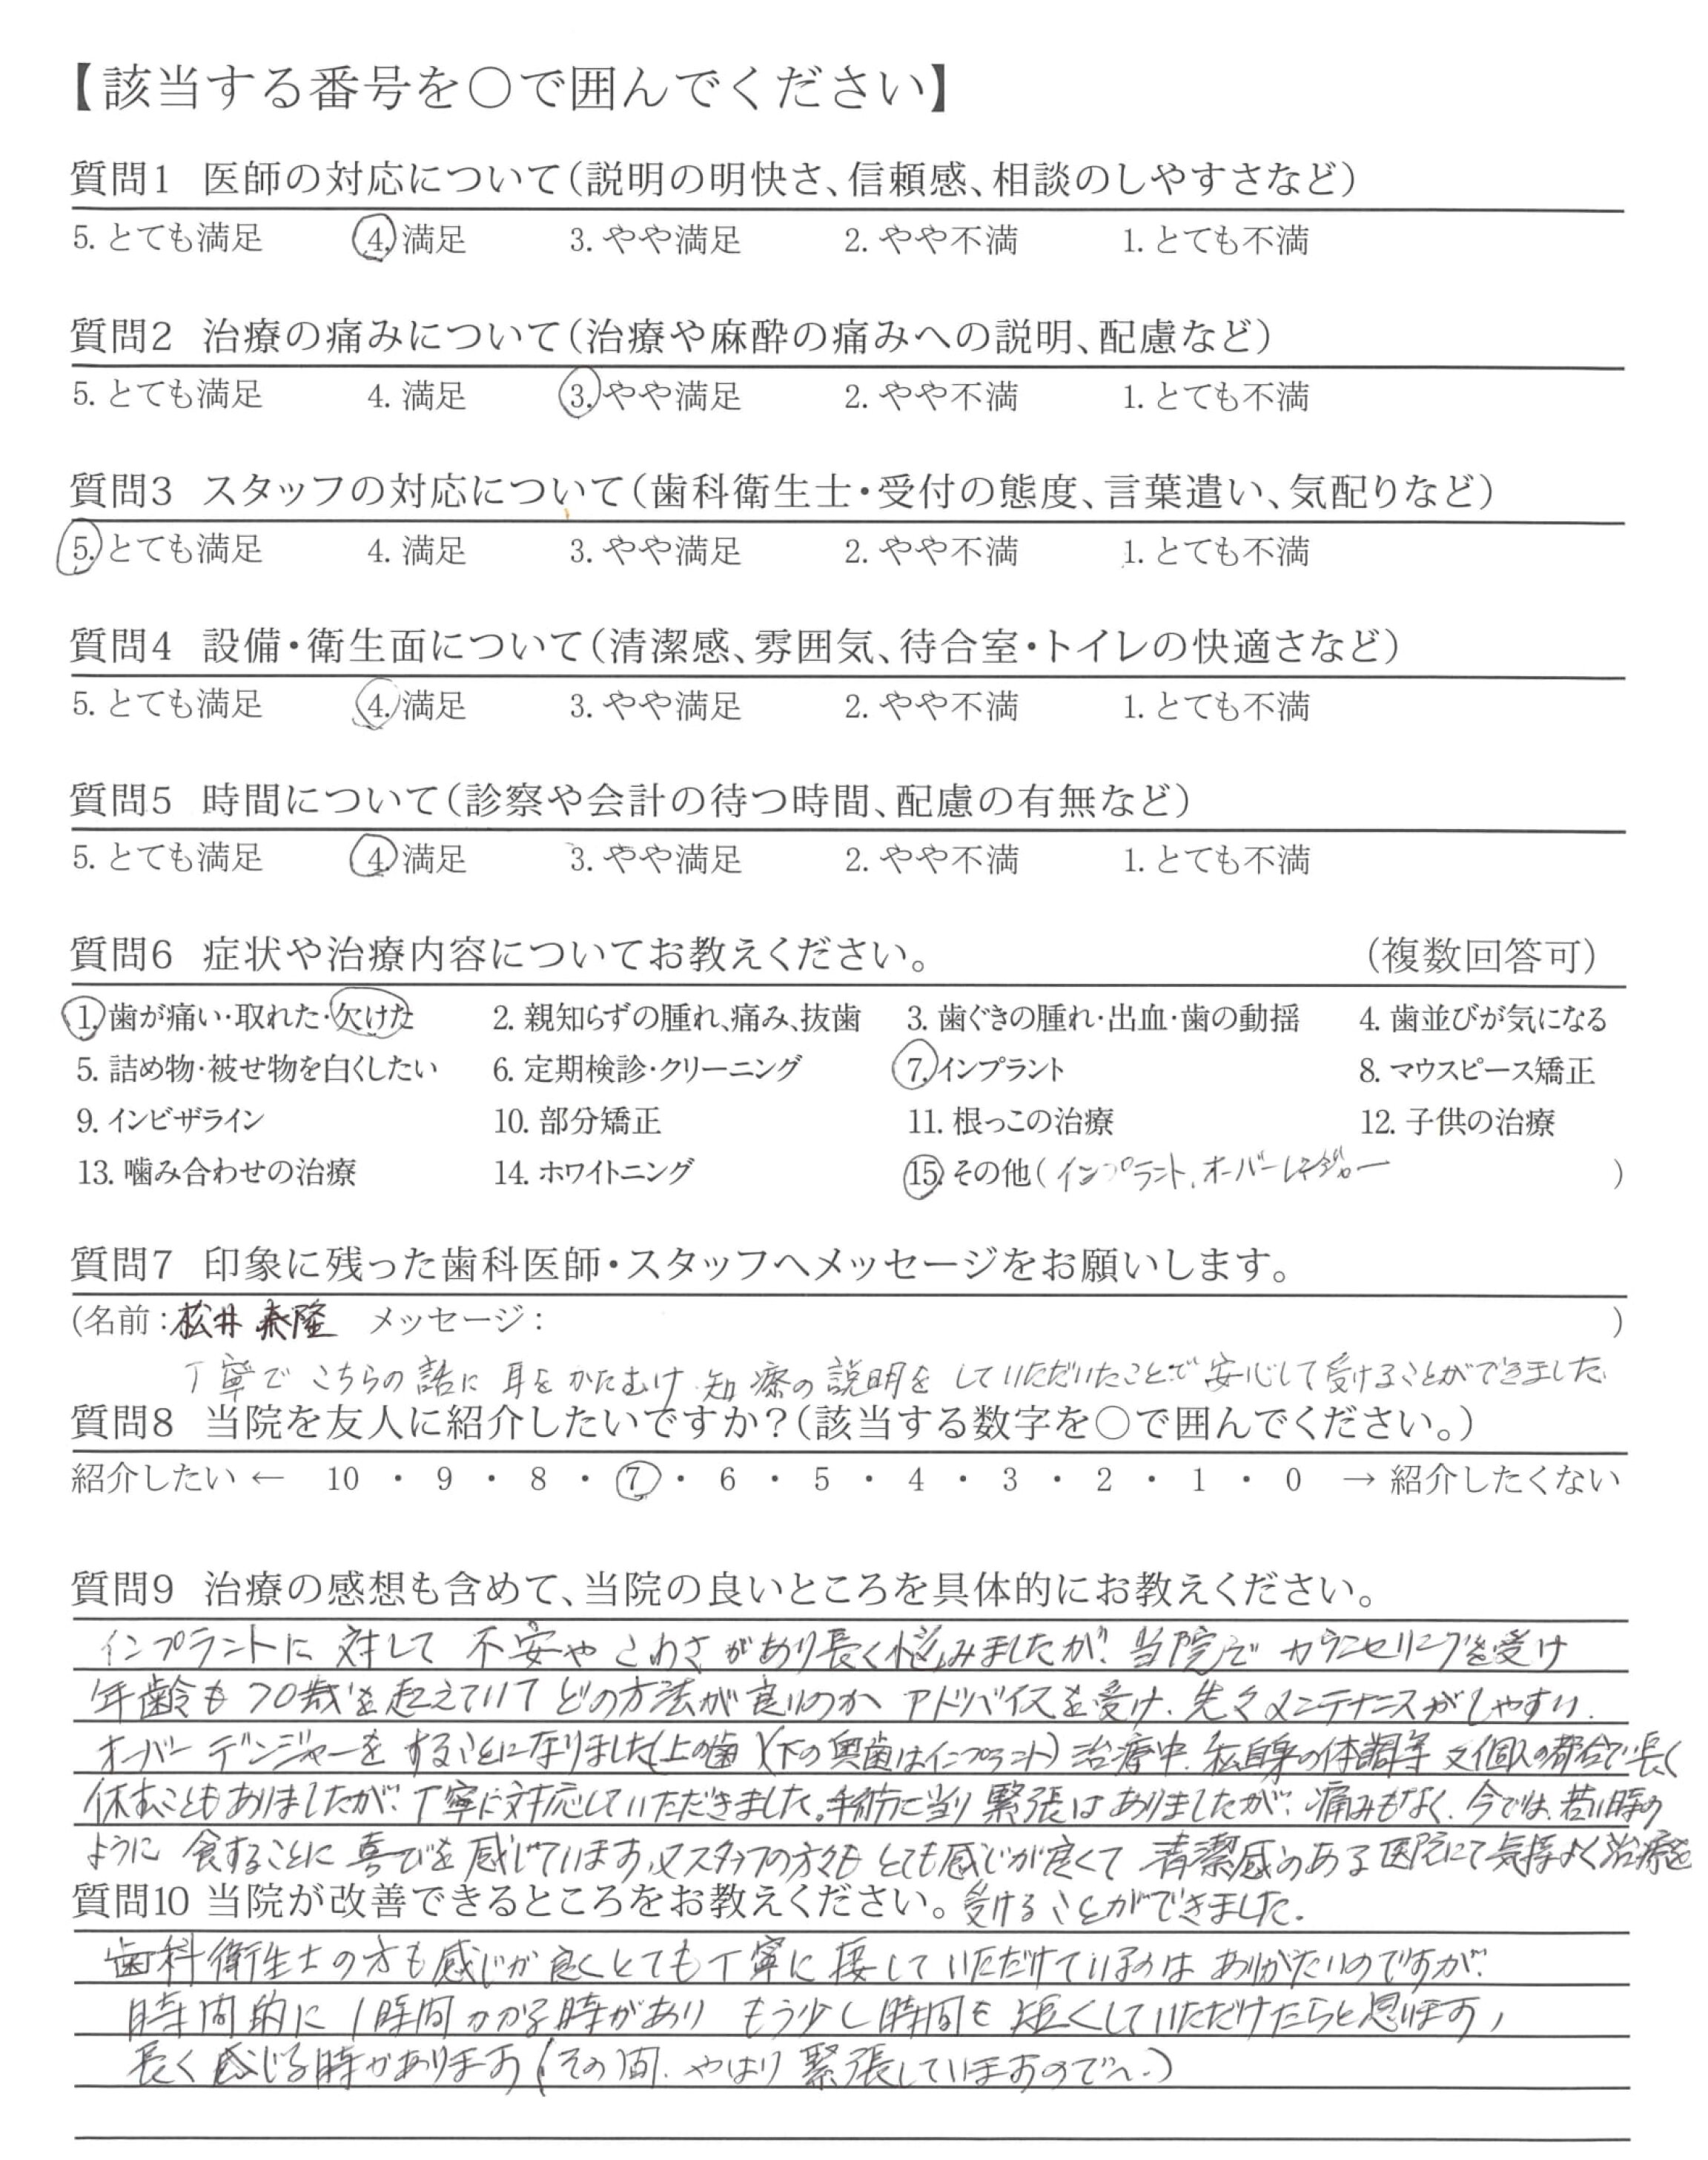 【該当する番号を○で囲んでください】
質問1 医師の対応について(説明の明快さ、信頼感、相談のしやすさなど)
5. とても満足 4. 満足 3. やや満足 2. やや不満 1. とても不満
質問2 治療の痛みについて(治療や麻酔の痛みへの説明、配慮など)
5. とても満足 4. 満足 3. やや満足 2. やや不満 1. とても不満
質問3 スタッフの対応について(歯科衛生士・受付の態度、言葉遣い、気配りなど)
5. とても満足 4. 満足 3. やや満足 2. やや不満 1. とても不満
質問4 設備・衛生面について(清潔感、雰囲気、待合室・トイレの快適さなど)
5. とても満足 4. 満足 3. やや満足 2. やや不満 1. とても不満
質問5 時間について(診察や会計の待つ時間、配慮の有無など)
5. とても満足 4. 満足 3. やや満足 2. やや不満 1. とても不満
質問6 症状や治療内容についてお教えください。 (複数回答可)
1. 歯が痛い・取れた・欠けた 2. 親知らずの腫れ、痛み、抜歯 3. 歯ぐきの腫れ・出血・歯の動揺 4. 歯並びが気になる
5. 詰め物・被せ物を白くしたい 6. 定期検診・クリーニング 7. インプラント 8. マウスピース矯正
9. インビザライン 10. 部分矯正 11. 根っこの治療 12. 子供の治療
13. 噛み合わせの治療 14. ホワイトニング 15. その他(インプラント、オーバー )
質問7 印象に残った歯科医師・スタッフへメッセージをお願いします。
(名前:松井 泰隆 メッセージ: )
丁寧で こちらの話に 耳をかたむけ 知療の説明をしていただいたことで安心して受けることができました。
質問8 当院を友人に紹介したいですか?(該当する数字を○で囲んでください。)
紹介したい ← 10 ・ 9 ・ 8 ・ 7 ・ 6 ・ 5 ・ 4 ・ 3 ・ 2 ・ 1 ・ 0 → 紹介したくない
質問9 治療の感想も含めて、当院の良いところを具体的にお教えください。
インプラントに 対して 不安や こわさがあり長く悩みましたが、当院で カウンセリングを受け
年齢も 70歳を超えていて どの方法が良いのか アドバイスを受け、先々メンテナンスがしやすい。
オーバーデンジャーをすることになりました(上の歯)(下の奥歯はインプラント)治療中、私自身の体調等 又個人の都合で長く
休むこともありましたが、丁寧に対応していただきました。手術に当り 緊張はありましたが、痛みもなく、今では、若い時の
ように 食することに 喜びを感じています。又スタッフの方々も とても感じが良くて 清潔感のある医院にて気持よく治療を
受けることができました。
質問10 当院が改善できるところをお教えください。
歯科衛生士の方も感じが良くとても丁寧に接していただけているのは ありがたいのですが、
時間的に 1時間かかる時があり もう少し時間を短くしていただけたらと思います、
長く感じる時があります(その間、やはり緊張していますので〜)